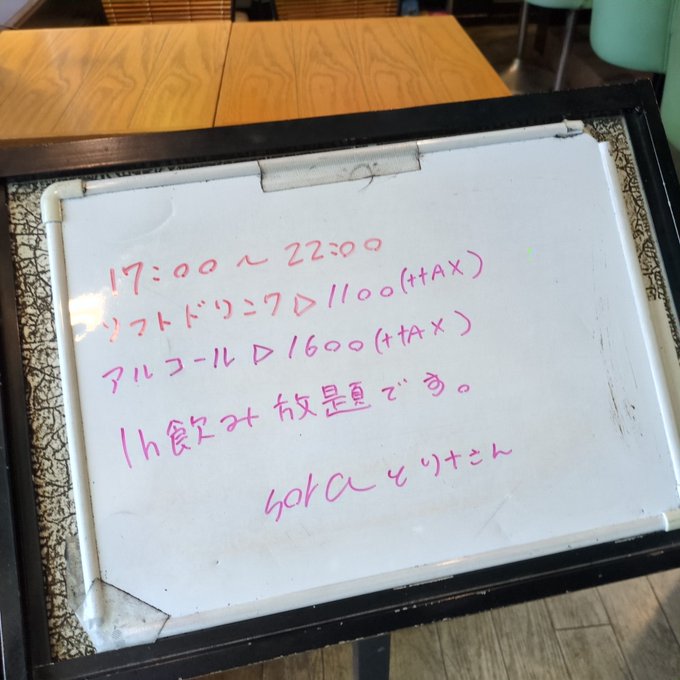 17:00~22:00
ソフトドリンク▷1100(+tAX)
アルコール▷1600(+tAX)
1h飲み放題です。
soraとりなさん